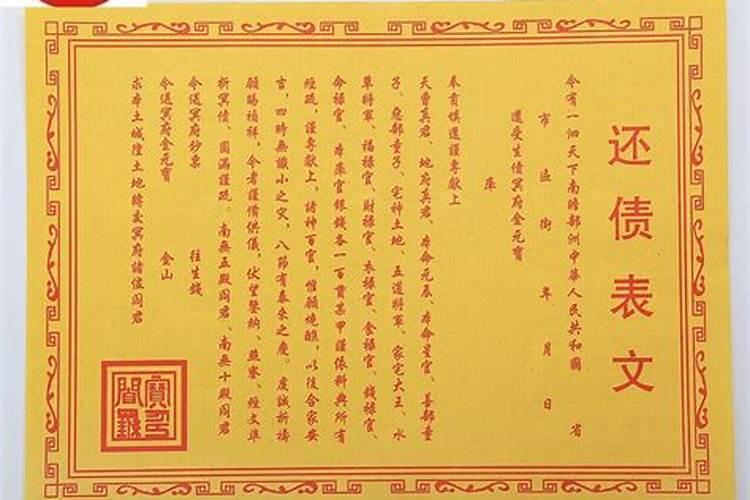 还债表文
今有一泗天下南瞻部洲中華人民共和國 省
市 區 街 年 月 日
還受生債冥府金元寶
庫
奉有填還謹專獻上
天曹真君、地府真君、本命元辰、本命星官、善部童
子、惡部童子、宅神土地、五道將軍、家宅大王、水
草將軍、福祿官、財祿官、衣祿官、食祿官、錢祿官、
命祿官、本庫官銀錢各一百貫某甲謹依科典所有
經疏，謹專獻上，諸神百官，惟願燒醮，以後合家安
吉，四時無議小之災，八節有泰來之慶。虔誠祈禱
願賜禎祥，令者謹備供儀，伏望鑒納、燕寮、經文準
折冥債、圓滿謹疏。南無五殿阎君、南無十殿阎君
今送冥府鈔票 往生錢
今送冥府金元寶 金山
求本土城隍土地轉交冥府諸位阎君